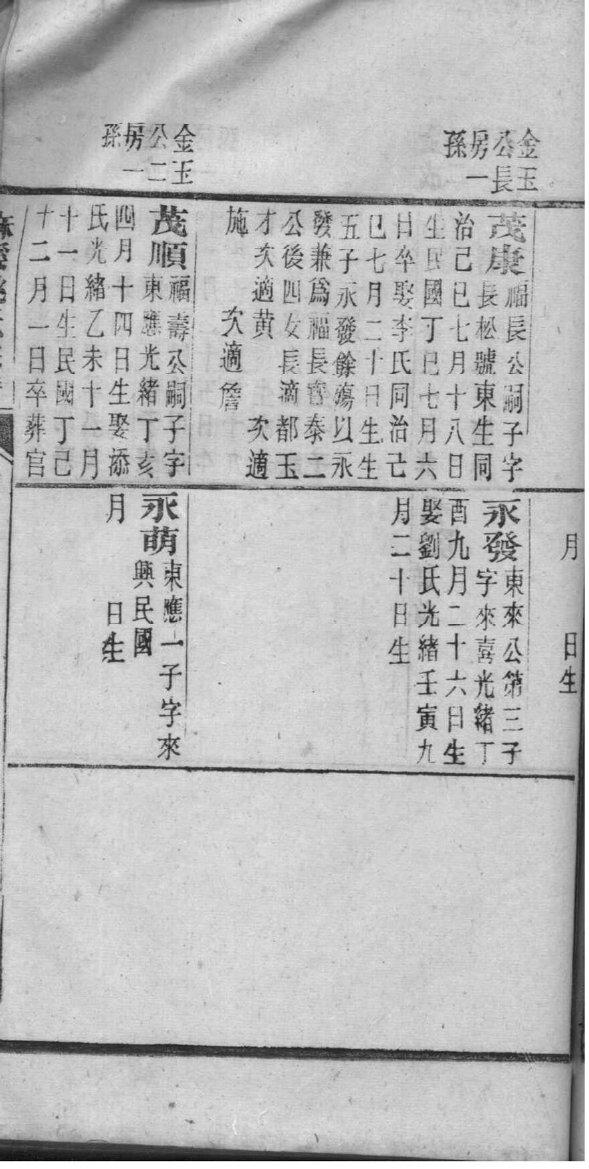 金玉
公長
房一
孫
茂康福長公嗣子字
長松號東生同
治己巳七月十八日
生民國丁巳七月六
日卒娶李氏同治己
巳七月二十日生生
五子永發餘殤以永
發兼爲福長壽泰二
公後四女長適都玉
才次適黄　次適
施　次適詹
金玉
公二
房一
孫
茂順福壽公嗣子字
東應光緒丁亥
四月十四日生娶添
氏光緒乙未十一月
十一日生民國丁己
十二月一日卒葬官
月　日生
永發東來公第三子
字來喜光緒丁
酉九月二十六日生
娶劉氏光緒壬寅九
月二十日生
永萌東應一子字來
興民國
月　日生